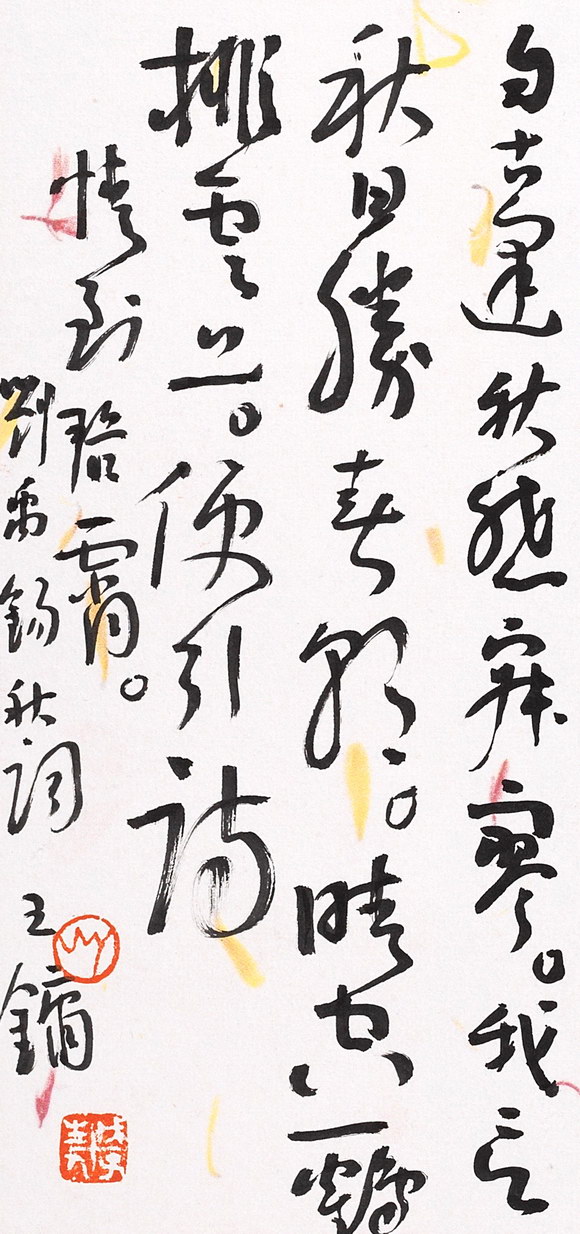 自古逢秋悲寂寥。我言
秋日勝春朝。晴空一鶴
排雲上。便引詩
情到碧霄。
劉禹錫秋詞 王鏞